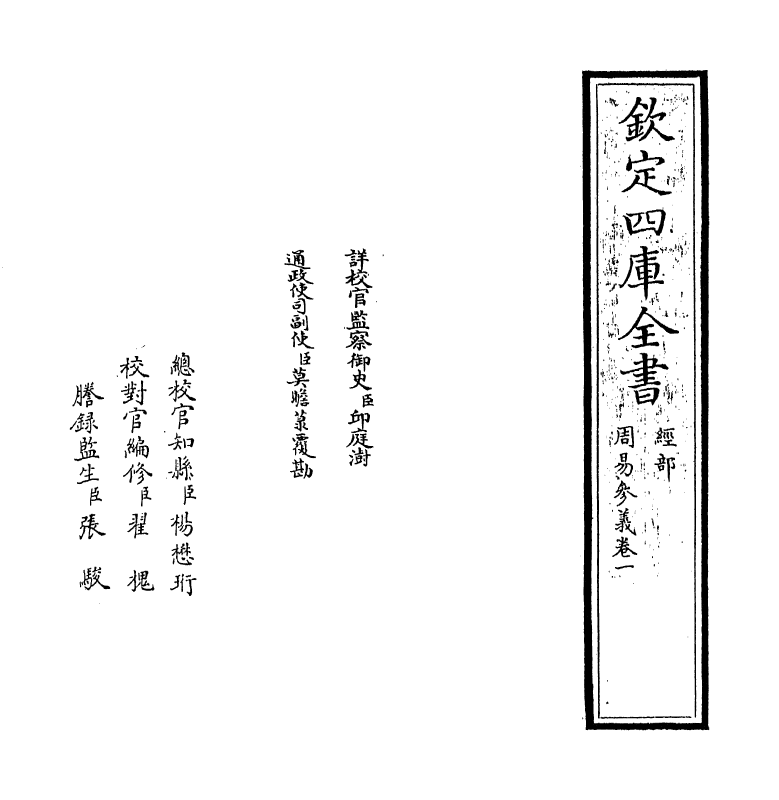 欽定四庫全書
經部
周易參義卷一
詳校官監察御史臣邱庭澍
通政使司副使臣莫瞻菉覆勘
總校官知縣臣楊懋珩
校對官編修臣翟槐
謄錄監生臣張駿